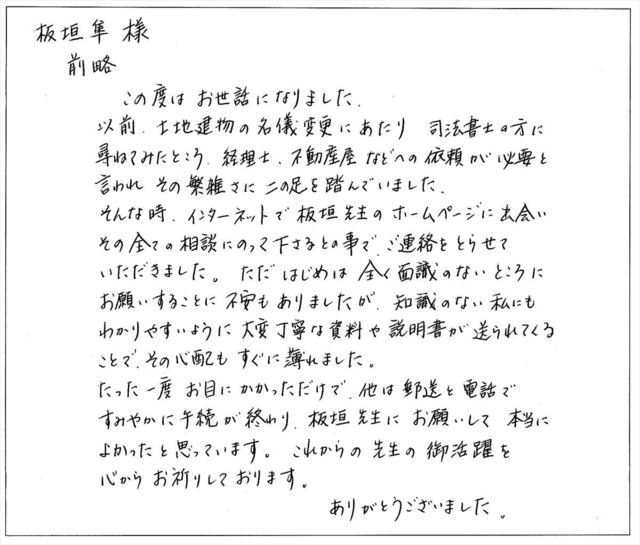 板垣隼様
前略
この度は お世話になりました.
以前、土地建物の名儀変更にあたり 司法書士の方に
尋ねてみたところ、経理士、不動産屋などへの依頼が必要と
言われ その繁雑さに二の足を踏んでいました.
そんな時、インターネットで板垣先生のホームページに出会い
その全ての相談にのって下さるとの事で、ご連絡をとらせて
いただきました。 ただ はじめは 全く面識のないところに
お願いすることに 不安もありましたが、知識のない私にも
わかりやすいように 大変丁寧な資料や説明書が送られてくる
ことで、その心配も すぐに薄れました。
たった一度 お目にかかっただけで、他は郵送と電話で
すみやかに手続が終わり、板垣先生に お願いして 本当に
よかったと思っています。 これからの先生の御活躍を
心から お祈りしております。
ありがとうございました。